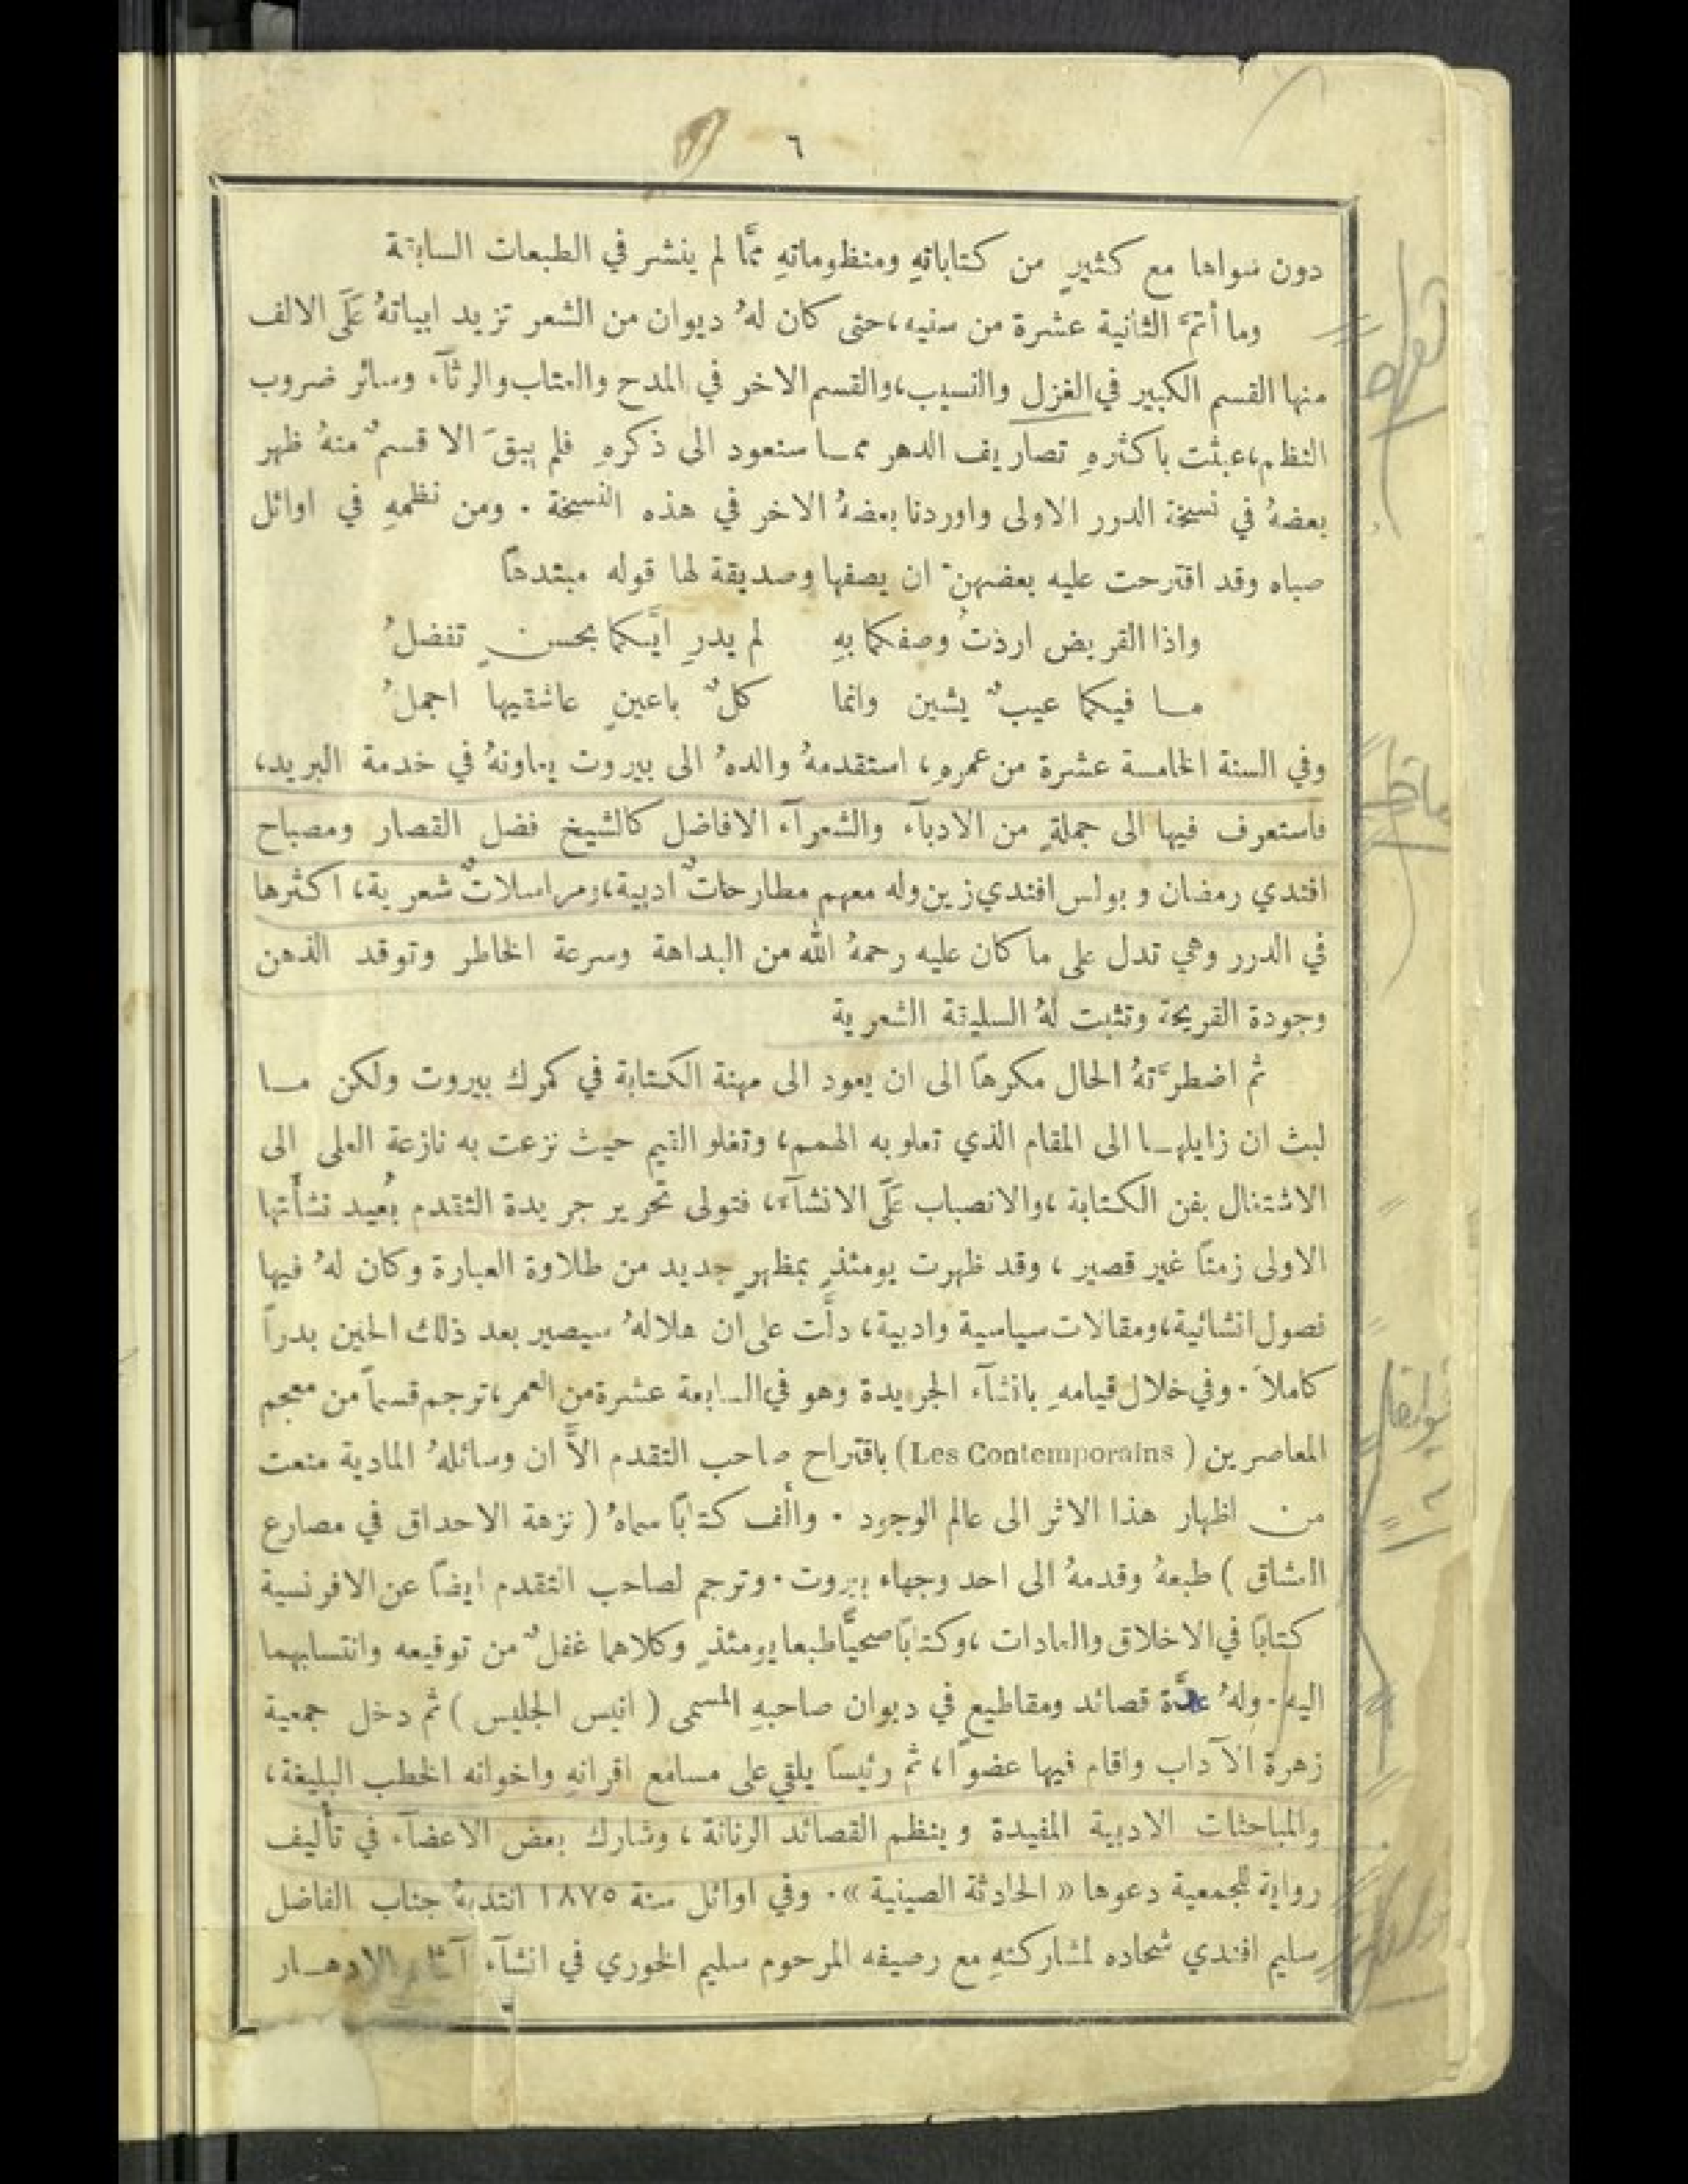 ٦
دون سواها مع كثيرٍ من كتاباتهِ ومنظوماتهِ ممَّا لم ينشر في الطبعات السابقة
وما أتمَّ الثانية عشرة من سنيه، حتى كان لهُ ديوان من الشعر تزيد ابياتهُ عَلَى الالف
منها القسم الكبير في الغزل والنسيب، والقسم الاخر في المدح والعتاب والرثآء وسائر ضروب
النظم، عبثت باكثرهِ تصاريف الدهر ممـا سنعود الى ذكرهِ فلم يبقَ الا قسمٌ منهُ ظهر
بعضهُ في نسخة الدرر الاولى واوردنا بعضهُ الاخر في هذه النسخة . ومن نظمهِ في اوائل
صباه وقد اقترحت عليه بعضهنّ ان يصفها وصديقة لها قوله مبتدهًا
واذا القريض اردتُ وصفكما بهِ لم يدرِ ايَّكما بحسنٍ تفضلُ
مـا فيكما عيبٌ يشين وانما كلٌّ باعينِ عاشقيها اجملُ
وفي السنة الخامسة عشرة من عمرهِ، استقدمهُ والدهُ الى بيروت يعاونهُ في خدمة البريد،
فاستعرف فيها الى جملةٍ من الادبآء والشعرآء الافاضل كالشيخ فضل القصار ومصباح
افندي رمضان وبولس افندي زين وله معهم مطارحاتٌ ادبية، ومراسلاتٌ شعرية، اكثرها
في الدرر وهي تدل على ما كان عليه رحمهُ الله من البداهة وسرعة الخاطر وتوقد الذهن
وجودة القريحة وتثبت لهُ السليقة الشعرية
ثم اضطرَّتهُ الحال مكرهًا الى ان يعود الى مهنة الكتابة في كمرك بيروت ولكن مـا
لبث ان زايلهـا الى المقام الذي تعلو به الهمم، وتغلو القيم حيث نزعت به نازعة العلى الى
الاشتغال بفن الكتابة، والانصباب عَلَى الانشآء، فتولى تحرير جريدة التقدم بُعيد نشأَتها
الاولى زمنًا غير قصير، وقد ظهرت يومئذٍ بمظهرٍ جديد من طلاوة العبارة وكان لهُ فيها
فصول انشائية، ومقالات سياسية وادبية، دلَّت على ان هلالهُ سيصير بعد ذلك الحين بدراً
كاملاً . وفي خلال قيامهِ بانشآء الجريدة وهو في السابعة عشرة من العمر، ترجم قسماً من معجم
المعاصرين (Les Contemporains) باقتراح صاحب التقدم الاَّ ان وسائلهُ المادية منعت
من اظهار هذا الاثر الى عالم الوجود . وألف كتابًا سماهُ (نزهة الاحداق في مصارع
العشاق) طبعهُ وقدمهُ الى احد وجهاء بيروت . وترجم لصاحب التقدم ايضًا عن الافرنسية
كتابًا في الاخلاق والعادات، وكتابًا صحيًّا طبعا يومئذٍ وكلاهما غفلٌ من توقيعه وانتسابهما
اليه . ولهُ عدَّة قصائد ومقاطيع في ديوان صاحبهِ المسمى (انيس الجليس) ثم دخل جمعية
زهرة الآداب واقام فيها عضوًا، ثم رئيسًا يلقي على مسامع اقرانهِ واخوانه الخطب البليغة،
والمباحثات الادبية المفيدة وينظم القصائد الرنانة، وشارك بعض الاعضآء في تأليف
رواية للجمعية دعوها «الحادثة الصينية» . وفي اوائل سنة ١٨٧٥ انتدبهُ جناب الفاضل
سليم افندي شحاده لمشاركتهِ مع رصيفه المرحوم سليم الخوري في انشآء آثار الادهـار